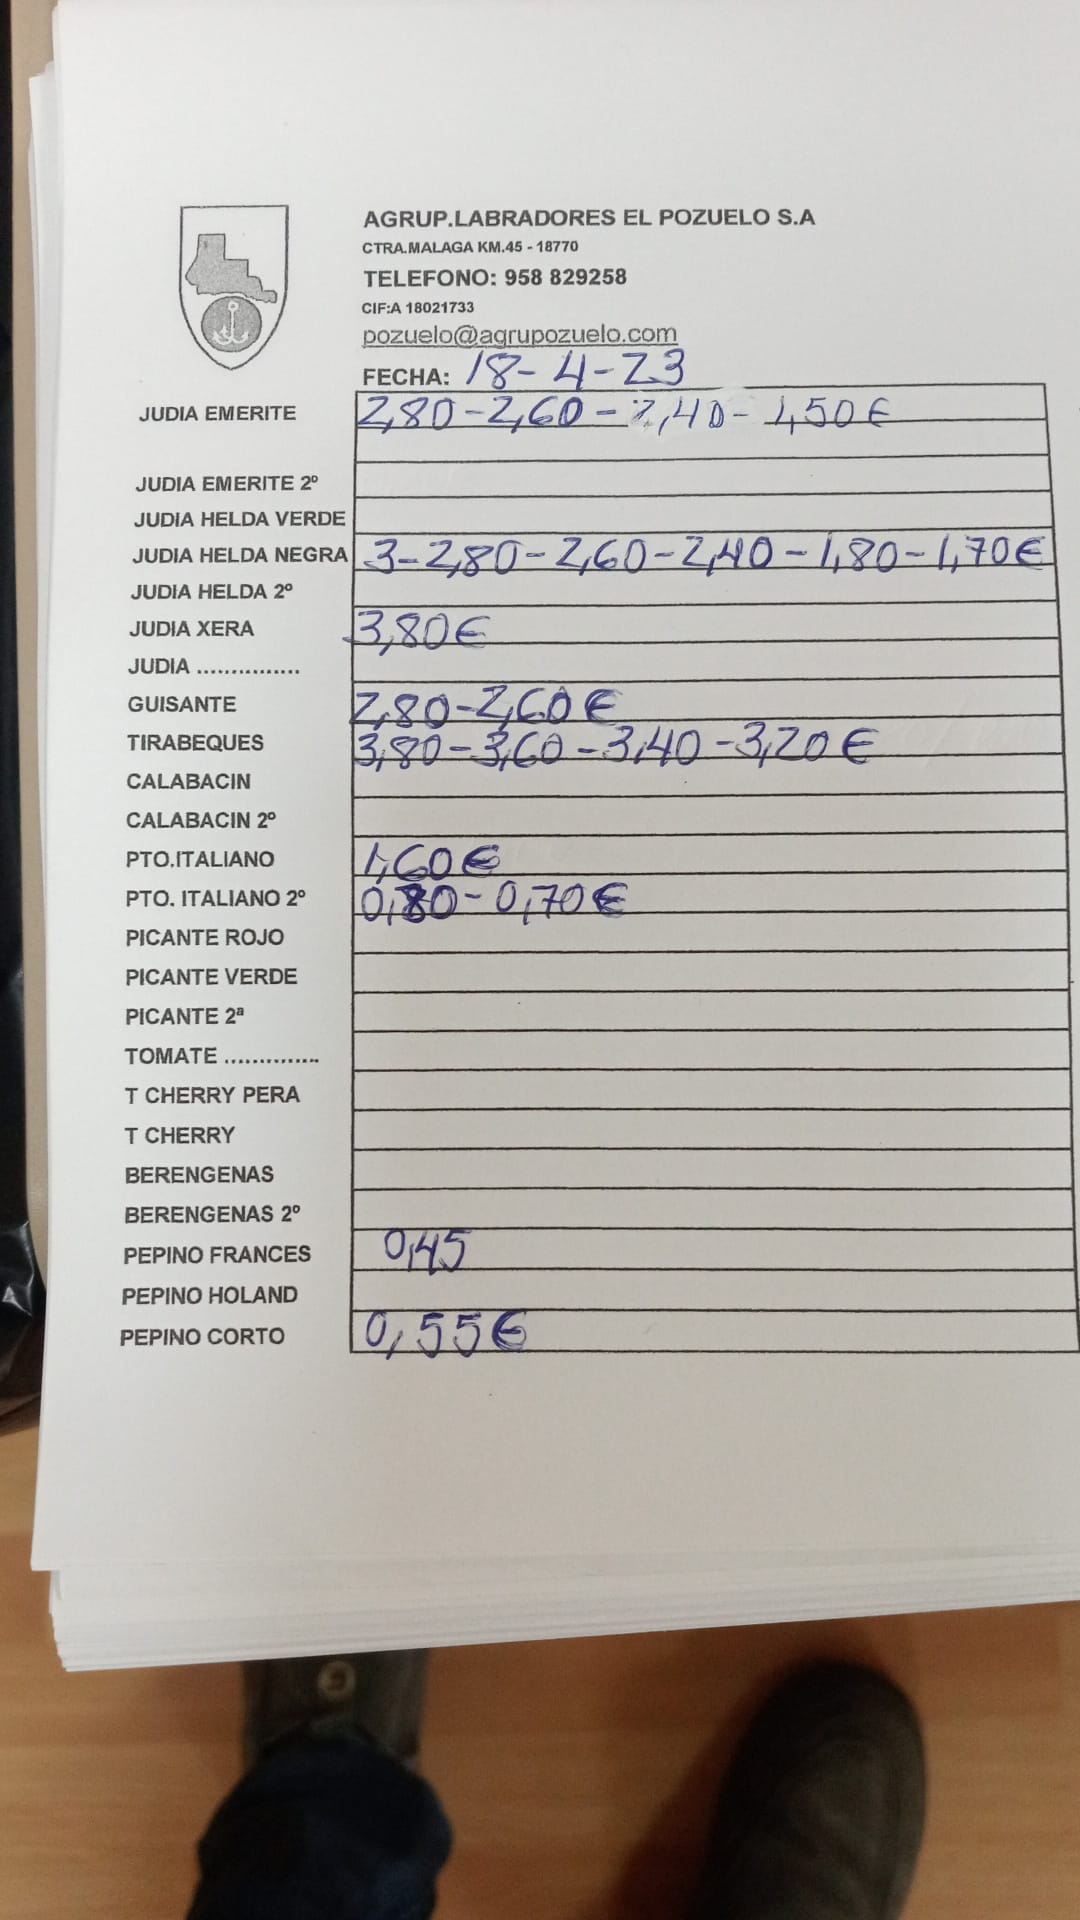 AGRUP.LABRADORES EL POZUELO S.A
CTRA.MALAGA KM.45 - 18770
TELEFONO: 958 829258
CIF:A 18021733
pozuelo@agrupozuelo.com
FECHA: 18-4-23
JUDIA EMERITE 2,80-2,60-2,40-1,50€
JUDIA EMERITE 2º
JUDIA HELDA VERDE
JUDIA HELDA NEGRA 3-2,80-2,60-2,40-1,80-1,70€
JUDIA HELDA 2º
JUDIA XERA 3,80€
JUDIA ...............
GUISANTE 2,80-2,60€
TIRABEQUES 3,80-3,60-3,40-3,20€
CALABACIN
CALABACIN 2º
PTO.ITALIANO 1,60€
PTO. ITALIANO 2º 0,80-0,70€
PICANTE ROJO
PICANTE VERDE
PICANTE 2ª
TOMATE ..............
T CHERRY PERA
T CHERRY
BERENGENAS
BERENGENAS 2º
PEPINO FRANCES 0,45
PEPINO HOLAND
PEPINO CORTO 0,55€